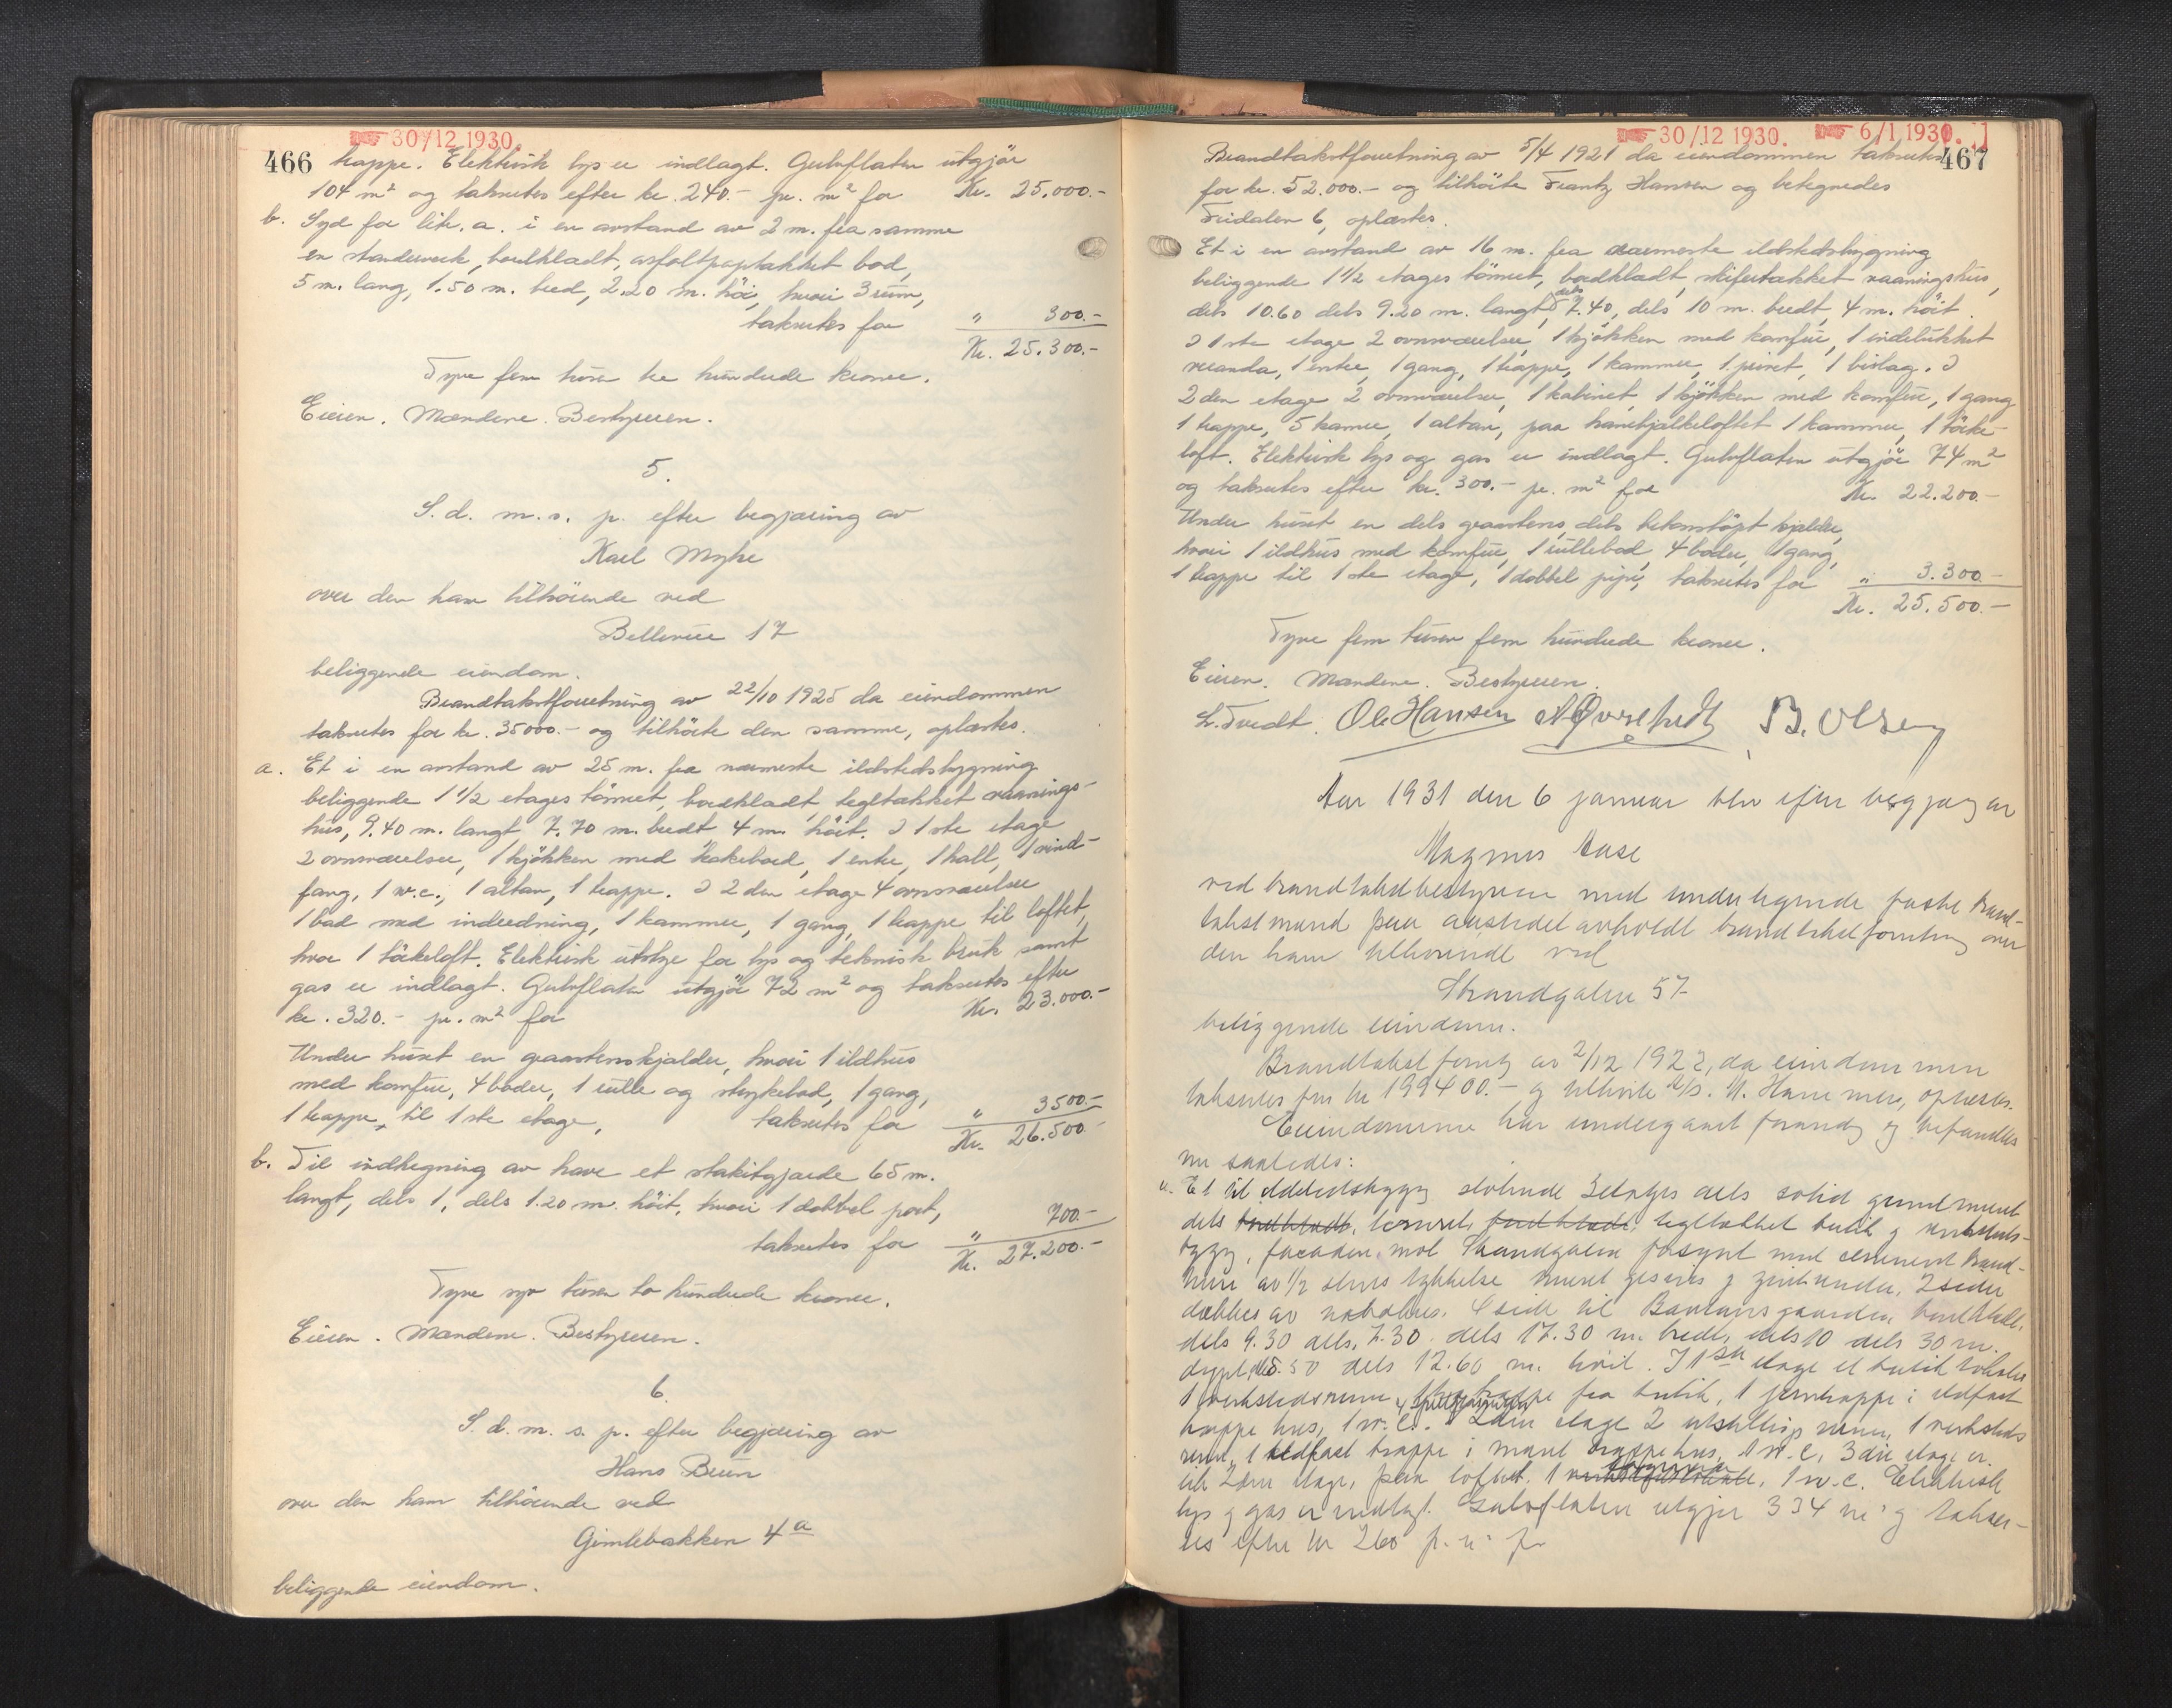 30/12 1930.
466 trappe. Elektrisk lys er indlagt. Gulvflaten utgjør
104 m² og takseres efter kr. 240.- pr. m² for Kr. 25,000.-
b. Syd for litr. a. i en avstand av 2 m. fra samme
en standerverk, bordklædt, asfaltpaptækket bod,
5 m. lang, 1.50 m. bred, 2.20 m. høi, hvori 3 rum,
takseres for " 300.-
Kr. 25.300.-
Tyve fem tusen tre hundrede kroner.
Eieren. Mændene. Bestyreren.
5.
S. d. m. s. p. efter begjæring av
Karl Myhre
over den ham tilhørende ved
Bellevue 17
beliggende eiendom.
Brandtakstforretning av 22/10 1925 da eiendommen
takseres for kr. 35000.- og tilhørte den samme, oplæstes.
a. Et i en avstand av 25 m. fra nærmeste ildstedsbygning
beliggende 1 1/2 etages tømret, bordklædt, tegltækket vaanings-
hus, 9.40 m. langt 7.70 m. bredt 4 m. høit. I 1ste etage
2 ovnsværelser, 1 kjøkken med kokebord, 1 entre, 1 hall, 1 vind-
fang, 1 w.c., 1 altan, 1 trappe. I 2den etage 4 ovnsværelser
1 bad med indredning, 1 kammer, 1 gang, 1 trappe til loftet,
hvor 1 tørkeloft. Elektrisk utstyr for lys og teknisk bruk samt
gas er indlagt. Gulvflaten utgjør 72 m² og takseres efter
kr. 320.- pr. m² for Kr. 23.000.-
Under huset en graastenskjælder, hvori 1 ildhus
med komfur, 4 boder, 1 rulle og strykebod, 1 gang,
1 trappe til 1ste etage, takseres for " 3500.-
Kr. 26.500.-
b. Til indhegning av have et stakitgjærde 65 m.
langt, dels 1, dels 1.20 m. høit, hvori 1 dobbel port,
takseres for " 700.-
Kr. 27.200.-
Tyve syv tusen to hundrede kroner.
Eieren. Mændene. Bestyreren.
6.
S. d. m. s. p. efter begjæring av
Hans Brun
over den ham tilhørende ved
Gimlebakken 4a
beliggende eiendom.
30/12 1930. 6/1 1931.
Brandtakstforretning av 5/4 1921 da eiendommen takseres 467
for kr. 52.000.- og tilhørte Frantz Hansen og betegnedes
Fridalen 6, oplæstes.
Et i en avstand av 16 m. fra nærmeste ildstedsbygning
beliggende 1 1/2 etages tømret, bordklædt, skifertækket vaaningshus,
dels 10.60 dels 9.20 m. langt, dels 7.40, dels 10 m. bredt, 4 m. høit.
I 1ste etage 2 ovnsværelser, 1 kjøkken med komfur, 1 indelukket
veranda, 1 entre, 1 gang, 1 trappe, 1 kammer, 1 privet, 1 bislag. I
2den etage 2 ovnsværelser, 1 kabinet, 1 kjøkken med komfur, 1 gang
1 trappe, 5 kamre, 1 altan, paa hanebjælkeloftet 1 kammer, 1 tørke-
loft. Elektrisk lys og gas er indlagt. Gulvflaten utgjør 74 m²
og takseres efter kr. 300.- pr. m² for Kr. 22.200.-
Under huset en dels graastens, dels betonstøpt kjælder,
hvori 1 ildhus med komfur, 1 rullebod, 4 boder, 1 gang,
1 trappe til 1ste etage, 1 dobbel pipe, takseres for " 3.300.-
Kr. 25.500.-
Tyve fem tusen fem hundrede kroner.
Eieren. Mændene. Bestyreren.
L. Tvedt. Ole Hansen B. Olsen
Aar 1931 den 6 januar blev efter begjæring av
Magnus Aase
ved brandtakstbestyreren med undertegnede faste brand-
takstmænd paa aastedet avholdt brandtakstforretning over
den ham tilhørende ved
Strandgaten 57
beliggende eiendom.
Brandtakstforretn av 2/12 1922, da eiendommen
takseres for kr 199400.- og tilhørte M. Hammer, oplæstes.
Eiendommen har undergaat forandr og befandtes
nu saaledes:
a. Et til ildstedsbygg støtende 3 etages dels solid grundmuret
dels bordklædt, tømret, bordklædt, tegltækket butik og verksteds-
bygg, facaden mot Strandgaten forsynt med cementert brand-
mur av 1/2 stens tykkelse muret gesims og 2 sider
dækkes av nabohus. 1 side til bordklædt,
dels 9.30 dels 7.30 dels 17.30 m. bredt, dels 10 dels 30 m.
dypt, dels 8.50 dels 12.60 m. høit. I 1ste etage et butiklokale
1 verkstedsrum, 1 trappe fra butik, 1 jerntrappe i ildfast
trappe hus, 1 w.c. I 2den etage 2 utstillings rum, 1 verksteds
rum, 1 ildfast trappe i muret trappehus, 1 w.c., 3die etage er
lik 2den etage, paa loftet 1 1 w.c. Elektrisk
lys og gas er indlagt. Gulvflaten utgjør 334 m² og takser-
es efter kr 260 p. m² for